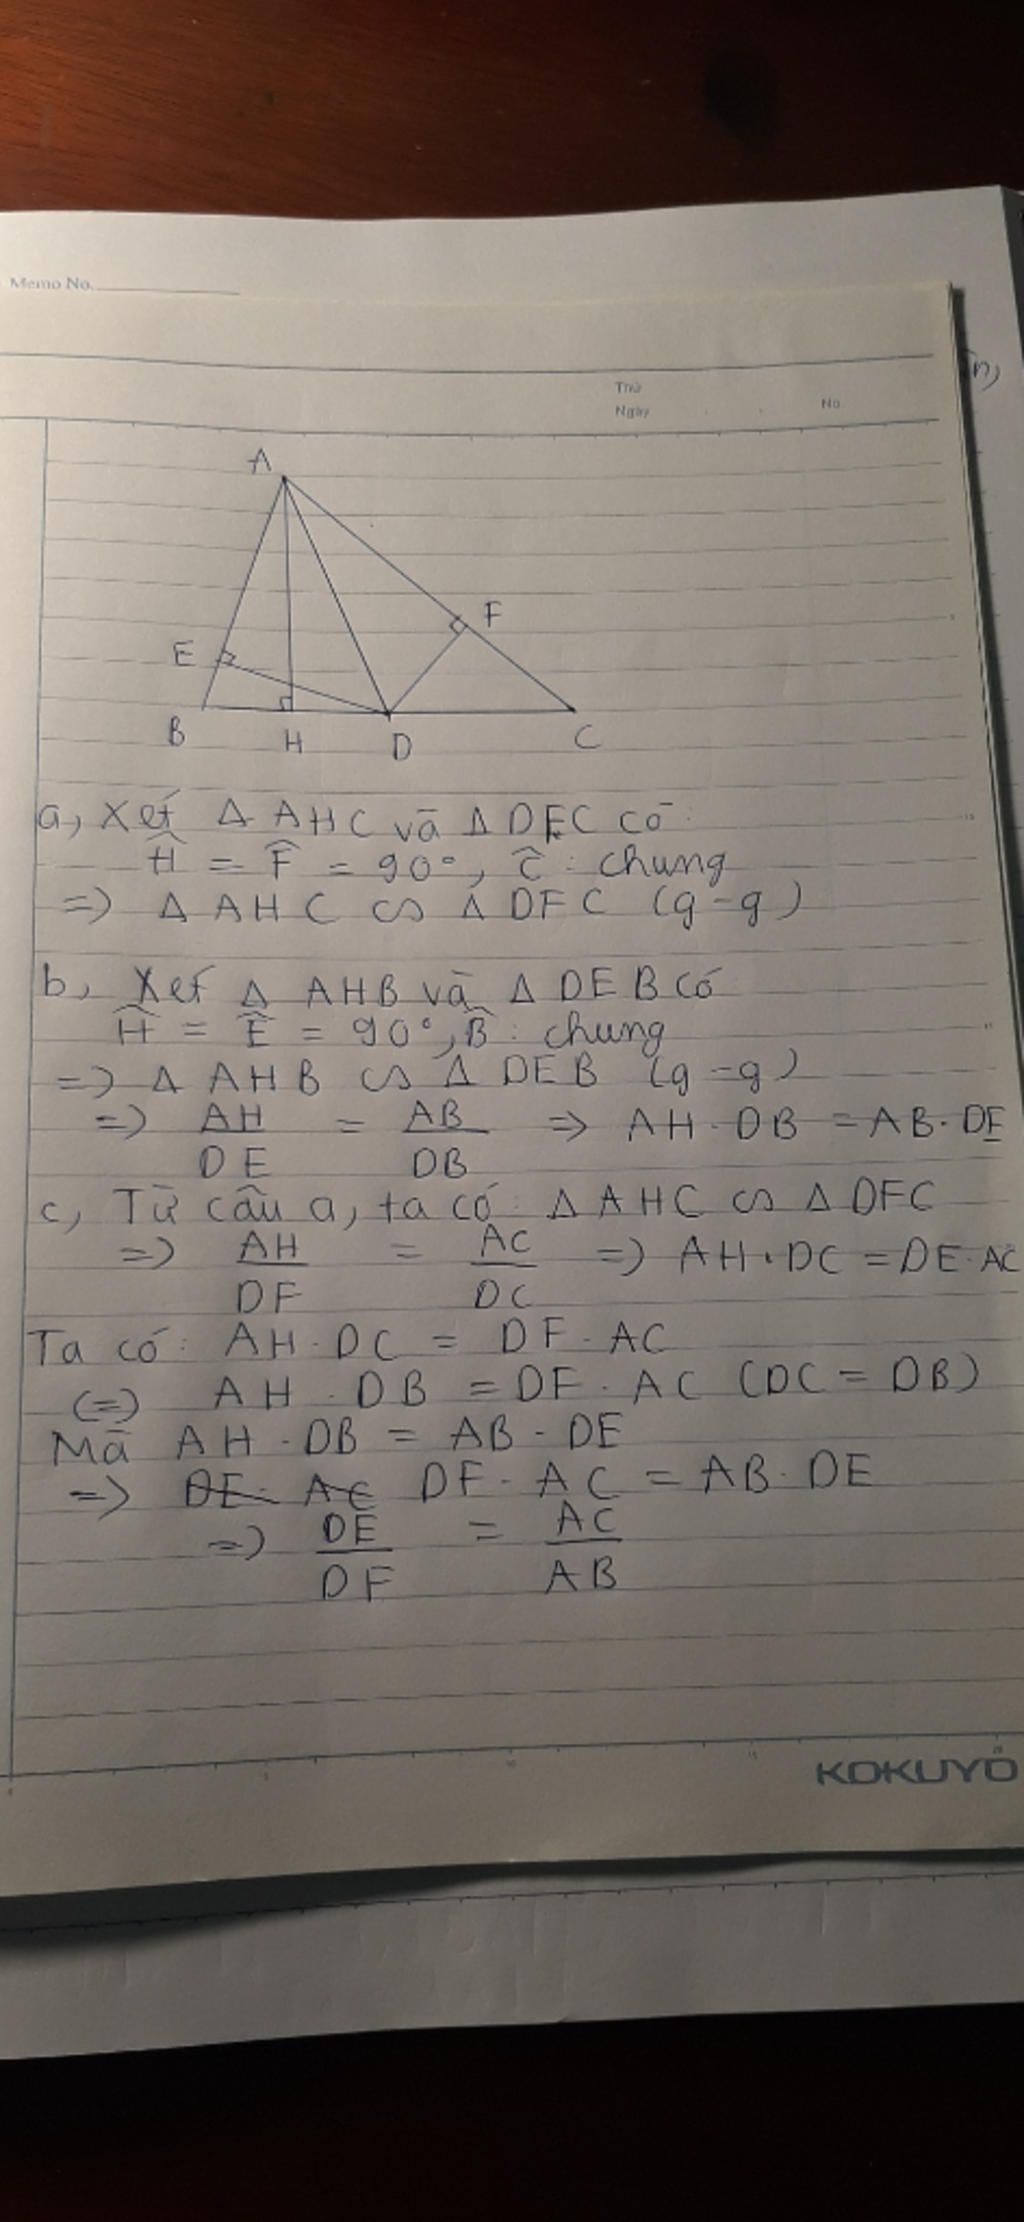 Memo No.
Thứ
Ngày
No
A
F
E
B H D C
a, Xét Δ AHC và Δ DFC có:
Ĥ = F̂ = 90°, Ĉ: chung
=> Δ AHC ∽ Δ DFC (g-g)
b, Xét Δ AHB và Δ DEB có
Ĥ = Ê = 90°, B̂: chung
=> Δ AHB ∽ Δ DEB (g-g)
=> AH/DE = AB/DB => AH.DB = AB.DE
c, Từ câu a, ta có: Δ AHC ∽ Δ DFC
=> AH/DF = AC/DC => AH.DC = DE.AC
Ta có: AH.DC = DF.AC
(=) AH.DB = DF.AC (DC = DB)
Mà AH.DB = AB.DE
=> DE. AC DF.AC = AB.DE
=> DE/DF = AC/AB
KOKUYO